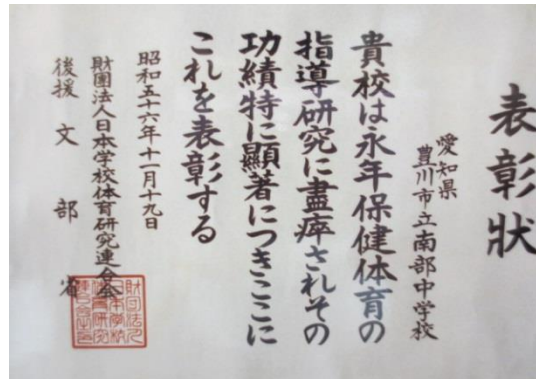 表彰状
愛知県
豊川市立南部中学校
貴校は永年保健体育の
指導研究に盡瘁されその
功績特に顯著につきここに
これを表彰する
昭和五十六年十一月十九日
財團法人日本学校体育研究連合会
後援 文部省